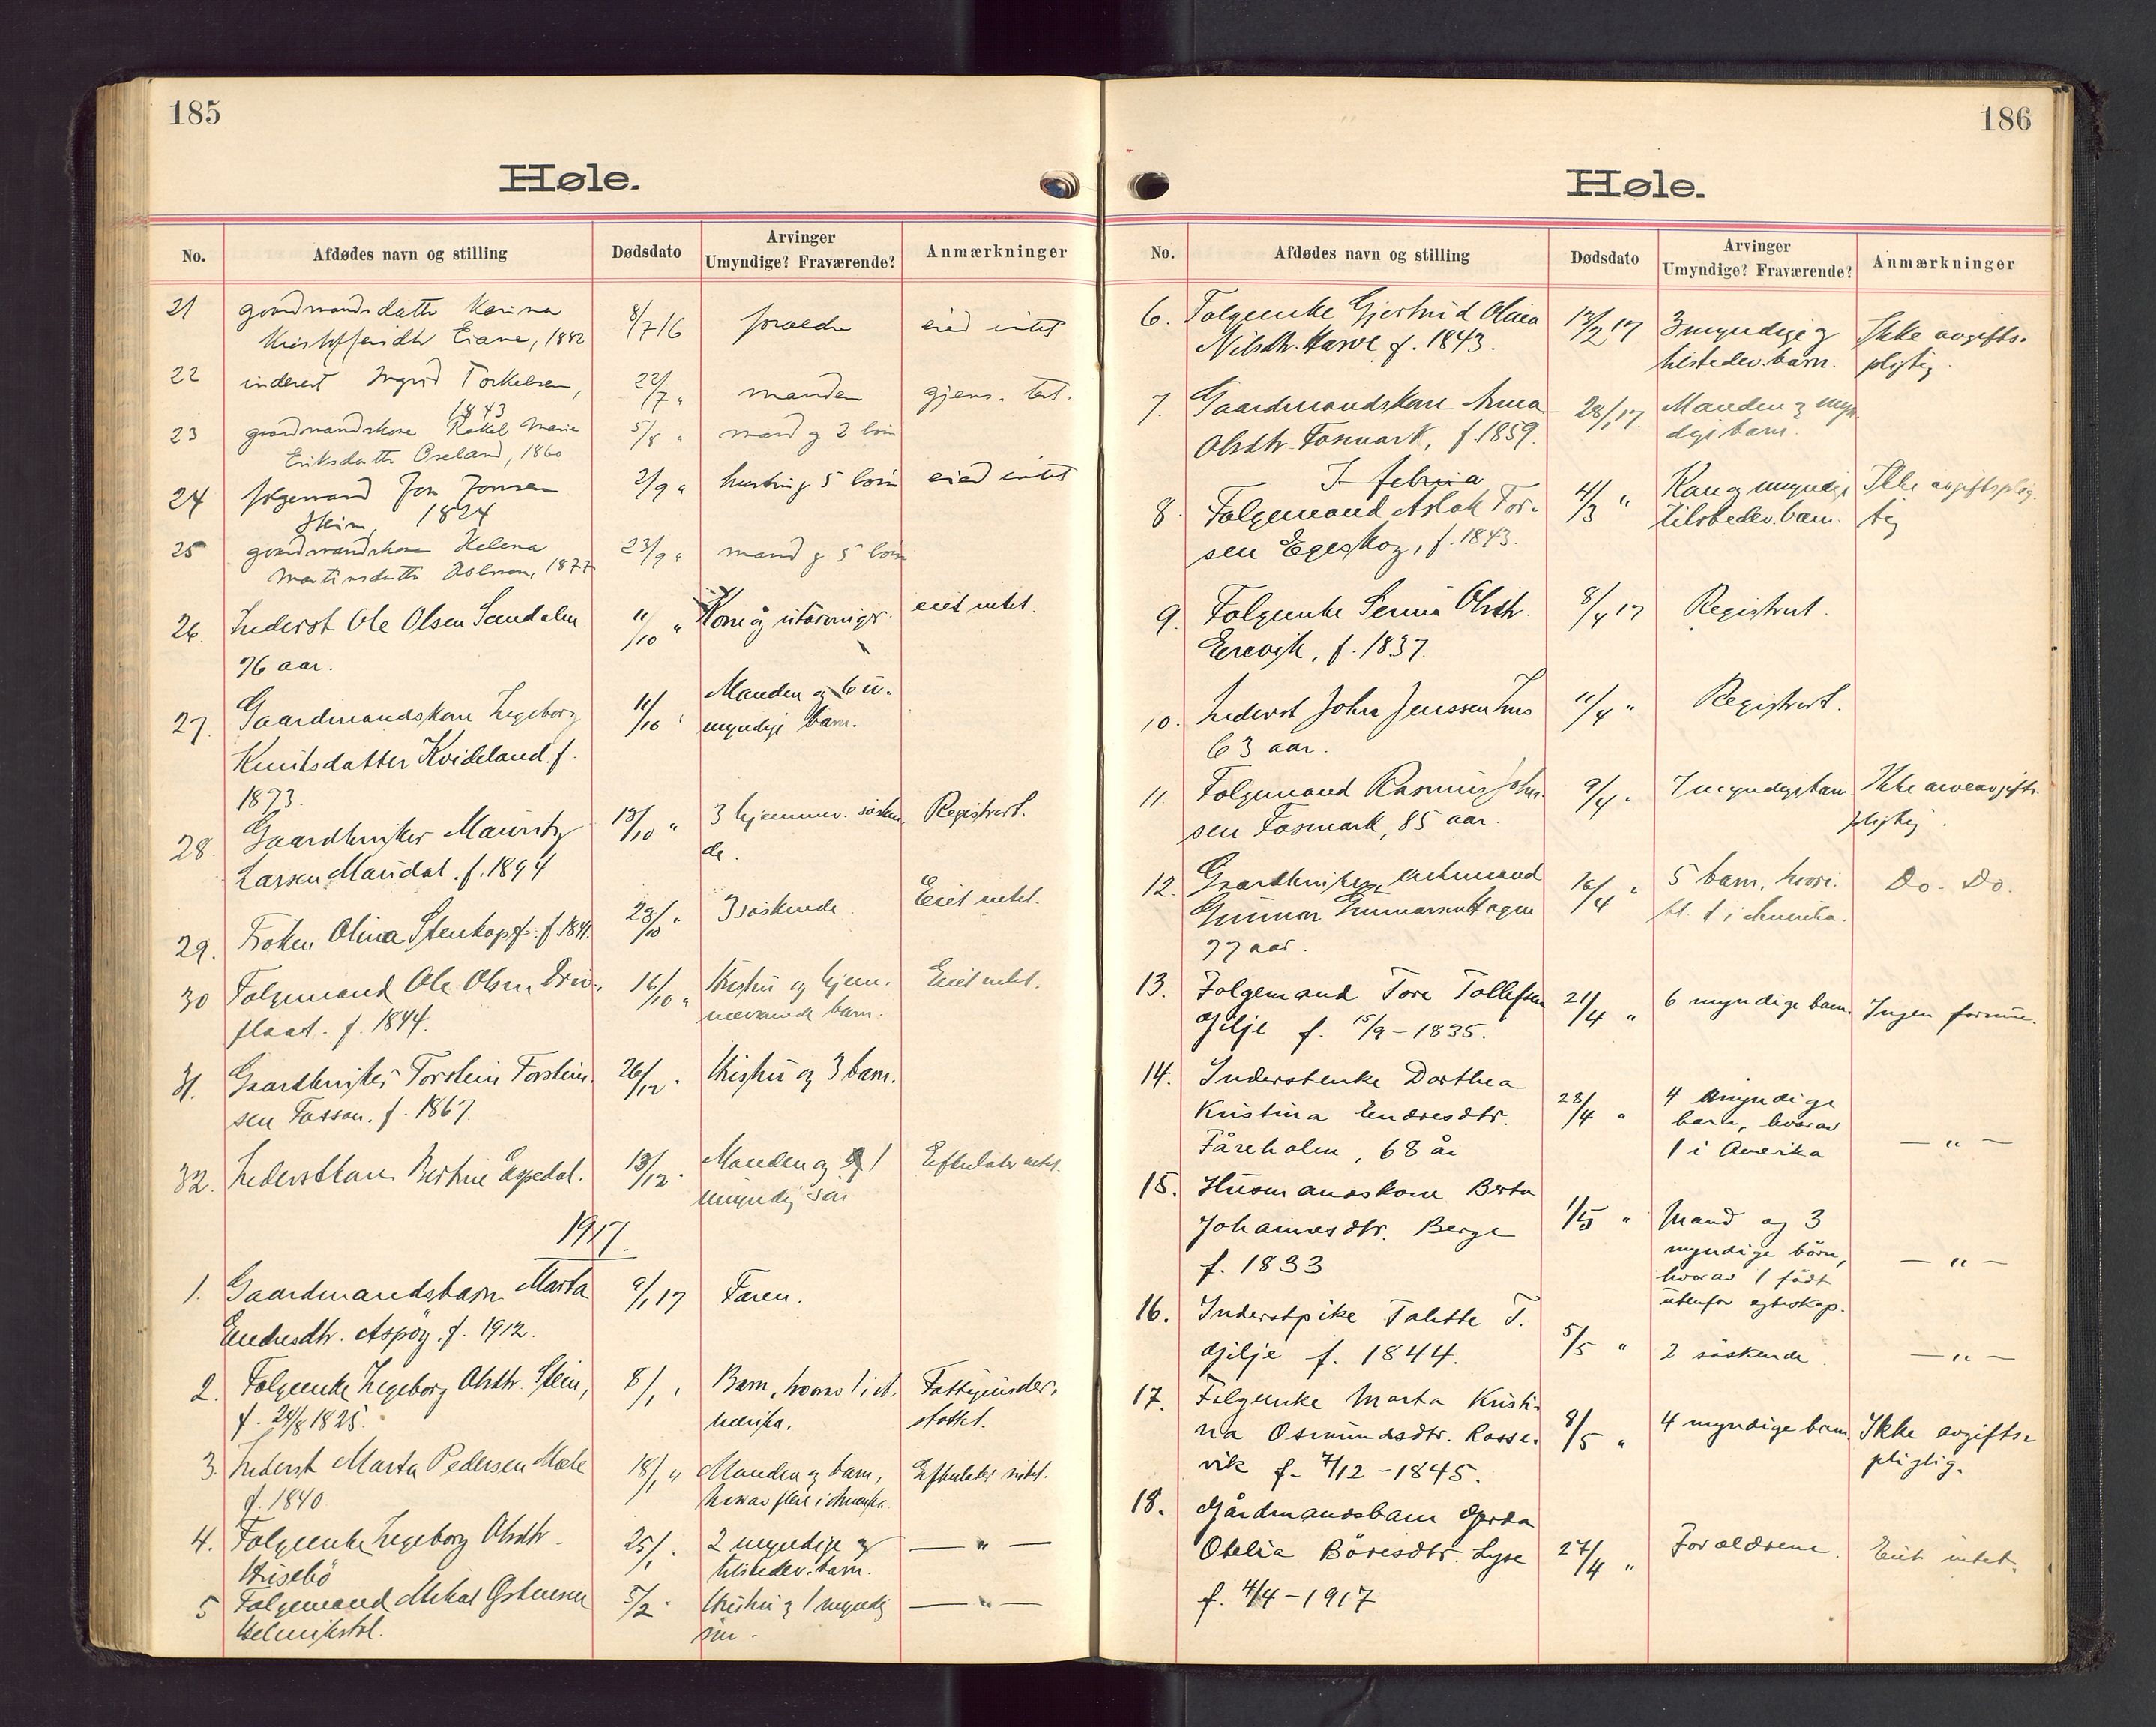 185
Høle.
No.
Afdødes navn og stilling
Dødsdato
Arvinger
Umyndige? Fraværende?
Anmærkninger
21 gaardmandsdatter Karina 8/7 16 forældre eied intet
Eiane, 1882
22 inderst Ingrid Torkelsen, 22/7 " manden gjens. test.
1843
23 gaardmandskone Rakel Marie 5/8 " mand og 2 børn
Eriksdatter Oseland, 1860
24 følgemand Jon Jonsen 2/9 " hustru og 5 børn eied intet
1824
25 gaardmandskone Helena 23/9 " mand og 5 børn
Martinsdatter 1877
26. Inderst Ole Olsen Sandalen 11/10 " Kone og utarvinger. eiet intet.
76 aar.
27. Gaardmandskone Ingeborg 11/10 " Manden og 6 u-
Knutsdatter Kvideland. f. myndige barn.
1873.
28. Gaardbruker Mauritz 13/10 " 3 hjemmev. søsken- Registrert.
Larsen Maudal. f. 1894 de.
29. Frøken Olina Stenkopf. f. 1841. 23/10 " 3 søskende. Eiet intet.
30 Folgemand Ole Olsen 16/10 " Hustru og hjem- Eiet intet.
flaat. f. 1844. meværende barn.
31. Gaardbruker Torstein Torstein- 26/12 " Hustru og 3 barn.
sen Fossan. f. 1867.
32. Inderstkone Bertine Espedal. 13/12 " Manden og 1 Efterlater intet.
myndig søn
1917.
1. Gaardmandsbarn Marta 9/1 17 Faren.
Endresdtr. Aspøy. f. 1912.
2. Folgeenke Ingeborg Olsdtr. Stein, 8/1 " Barn, hvorav 1 i A- Fattigunder-
f. 24/8 1825. merika. støttet.
3. Inderst Marta Pedersen Mæle 18/1 " Manden og barn, Efterlater intet.
f. 1840 hvorav flere i Amerika.
4. Folgeenke Ingeborg Olsdtr. 25/1 " 2 myndige og — " —
Husebö tilstedev. barn.
5 Folgemand Mikal Østensen 5/2 " Hustru og 1 myndig — " —
søn.
186
Høle.
No.
Afdødes navn og stilling
Dødsdato
Arvinger
Umyndige? Fraværende?
Anmærkninger
6. Folgeenke Gjertrud Olina 13/2 17 3 myndige og Ikke avgifts-
Nilsdtr. f. 1843. tilstedev. barn. pligtig.
7. Gaardmandskone Anna 28/1 17. Manden og myn-
Olsdtr. Fosmark, f. 1859. dige barn.
I februa
8. Folgemand Aslak Tor- 4/3 " Kone og myndige Ikke avgiftsplig-
sen Egeskog, f. 1843. tilstedev. barn. tig
9. Folgeenke Serina Olsdtr. 8/4 17 Registrert.
Erevik, f. 1837.
10. Inderst John Jenssen Lius 11/4 " Registrert.
63 aar.
11. Folgemand Rasmus John- 9/4 " 7 myndige barn Ikke arveavgifts-
sen Fosmark, 85 aar. pligtig.
12. Gaardbruker, enkemand 16/4 " 5 barn, hvori- Do. Do.
Gunnar Gunnarsen Hogen bl. 1 i Amerika.
77 aar.
13. Folgemand Tore Tollefsen 21/4 " 6 myndige barn. Ingen formue.
Gilje f. 15/9 - 1835.
14. Inderstenke Dorthea 28/4 " 4 myndige
Kristina Endresdtr. barn, hvorav
Fåreholm, 68 år 1 i Amerika — " —
15. Husmandskone Berta 1/5 " Mand og 3
Johannesdtr. Berge myndige börn, — " —
f. 1833 hvorav 1 födt
utenfor egteskap.
16. Inderstpike Tolette T. 5/5 " 2 söskende. — " —
Gilje f. 1844.
17. Folgeenke Marta Kristi- 8/5 " 4 myndige barn. Ikke avgifts-
na Osmundsdtr. Rosse- pligtig.
vik f. 7/12 - 1845.
18. Gårdmandsbarn Gerda 27/4 " Forældrene. Eiet intet.
Otelia Böresdtr. Lyse
f. 4/4 - 1917